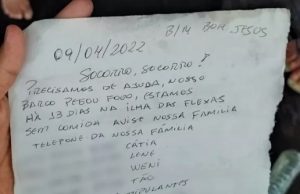 B/M BOM JESUS
09/04/2022
SOCORRO, SOCORRO!
PRECISAMOS DE AJUDA, NOSSO
BARCO PEGOU FOGO, ESTAMOS
HÁ 13 DIAS NA ILHA DAS FLEXAS
SEM COMIDA AVISE NOSSA FAMILIA
TELEFONE DA NOSSA FAMILIA
CÁTIA
LENE
WENI
TÃO